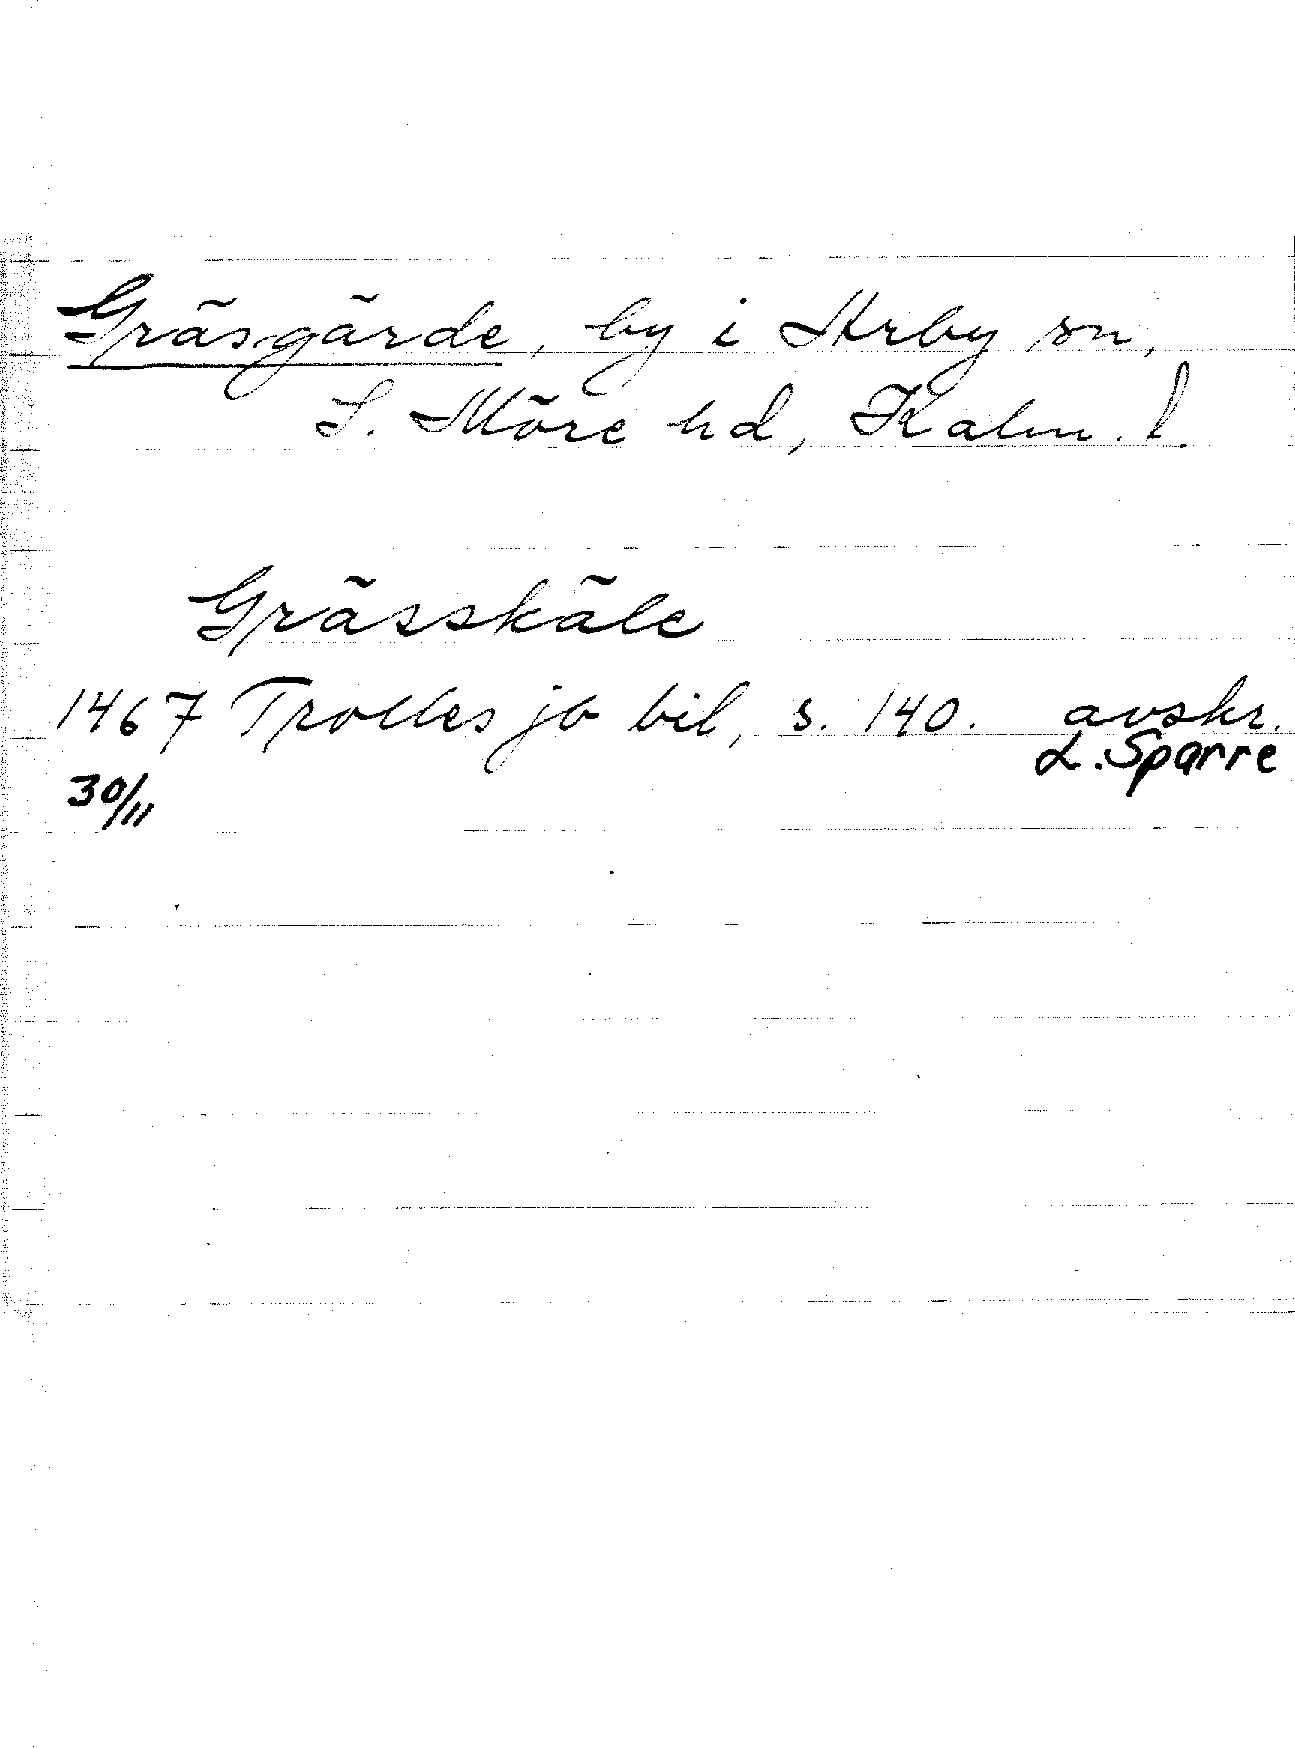 Gräsgärde, by i Arby sn,
S. Möre hd, Kalm. l.
Grässkäle
1467 Trolles jb bil, s. 140. avskr.
L. Sparre
30/11